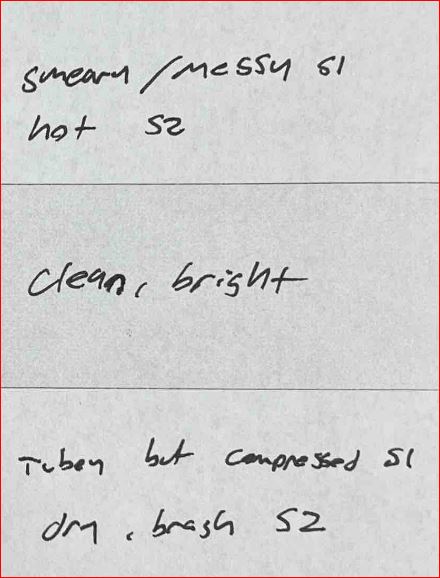 smeary / messy S1
hot S2
clean, bright
Tubey but compressed S1
dry, brash S2